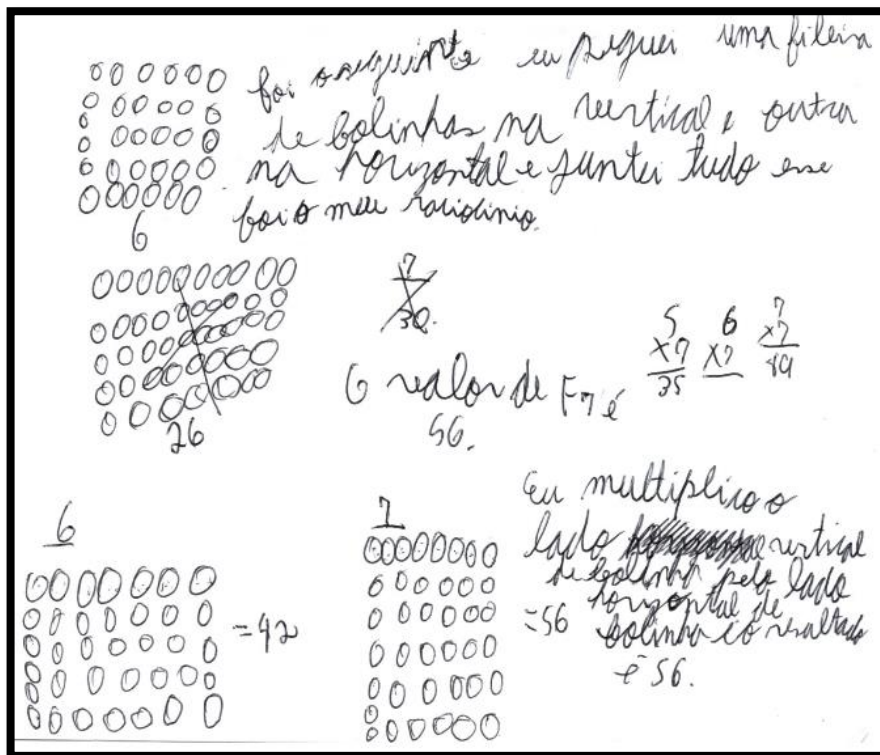 foi o seguinte eu peguei uma fileira
de bolinhas na vertical e outra
na horizontal e juntei tudo esse
foi o meu raciocinio.
6
7
30.
5 6 7
x7 x7 x7
35 49
O valor de F7 é
56.
26
6
= 42
7
= 56
Eu multiplico o
lado vertical
de bolinha pelo lado
horizontal de
bolinha e o resultado
é 56.